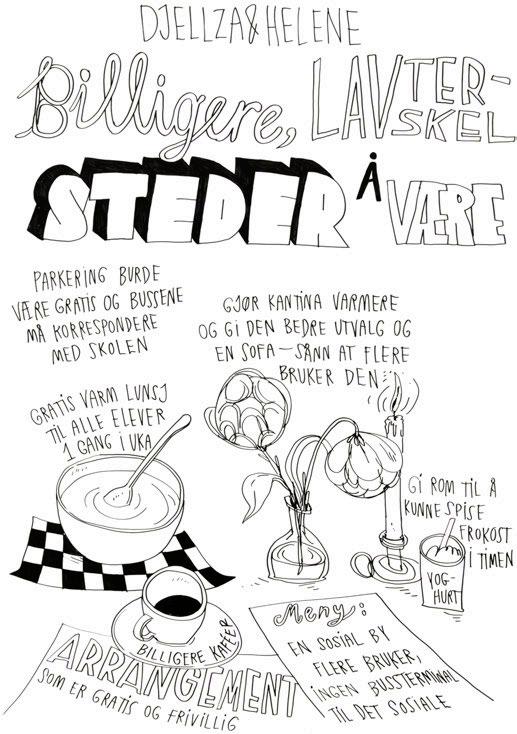 DJELLZA & HELENE
Billigere, LAVTER-
SKEL
STEDER Å VÆRE
PARKERING BURDE
VÆRE GRATIS OG BUSSENE
MÅ KORRESPONDERE
MED SKOLEN
GJØR KANTINA VARMERE
OG GI DEN BEDRE UTVALG OG
EN SOFA – SÅNN AT FLERE
BRUKER DEN
GRATIS VARM LUNSJ
TIL ALLE ELEVER
1 GANG I UKA
GI ROM TIL Å
KUNNE SPISE
FROKOST
I TIMEN
YOG-
HURT
BILLIGERE KAFEER
ARRANGEMENT
SOM ER GRATIS OG FRIVILLIG
Meny:
EN SOSIAL BY
FLERE BRUKER,
INGEN BUSSTERMINAL
TIL DET SOSIALE